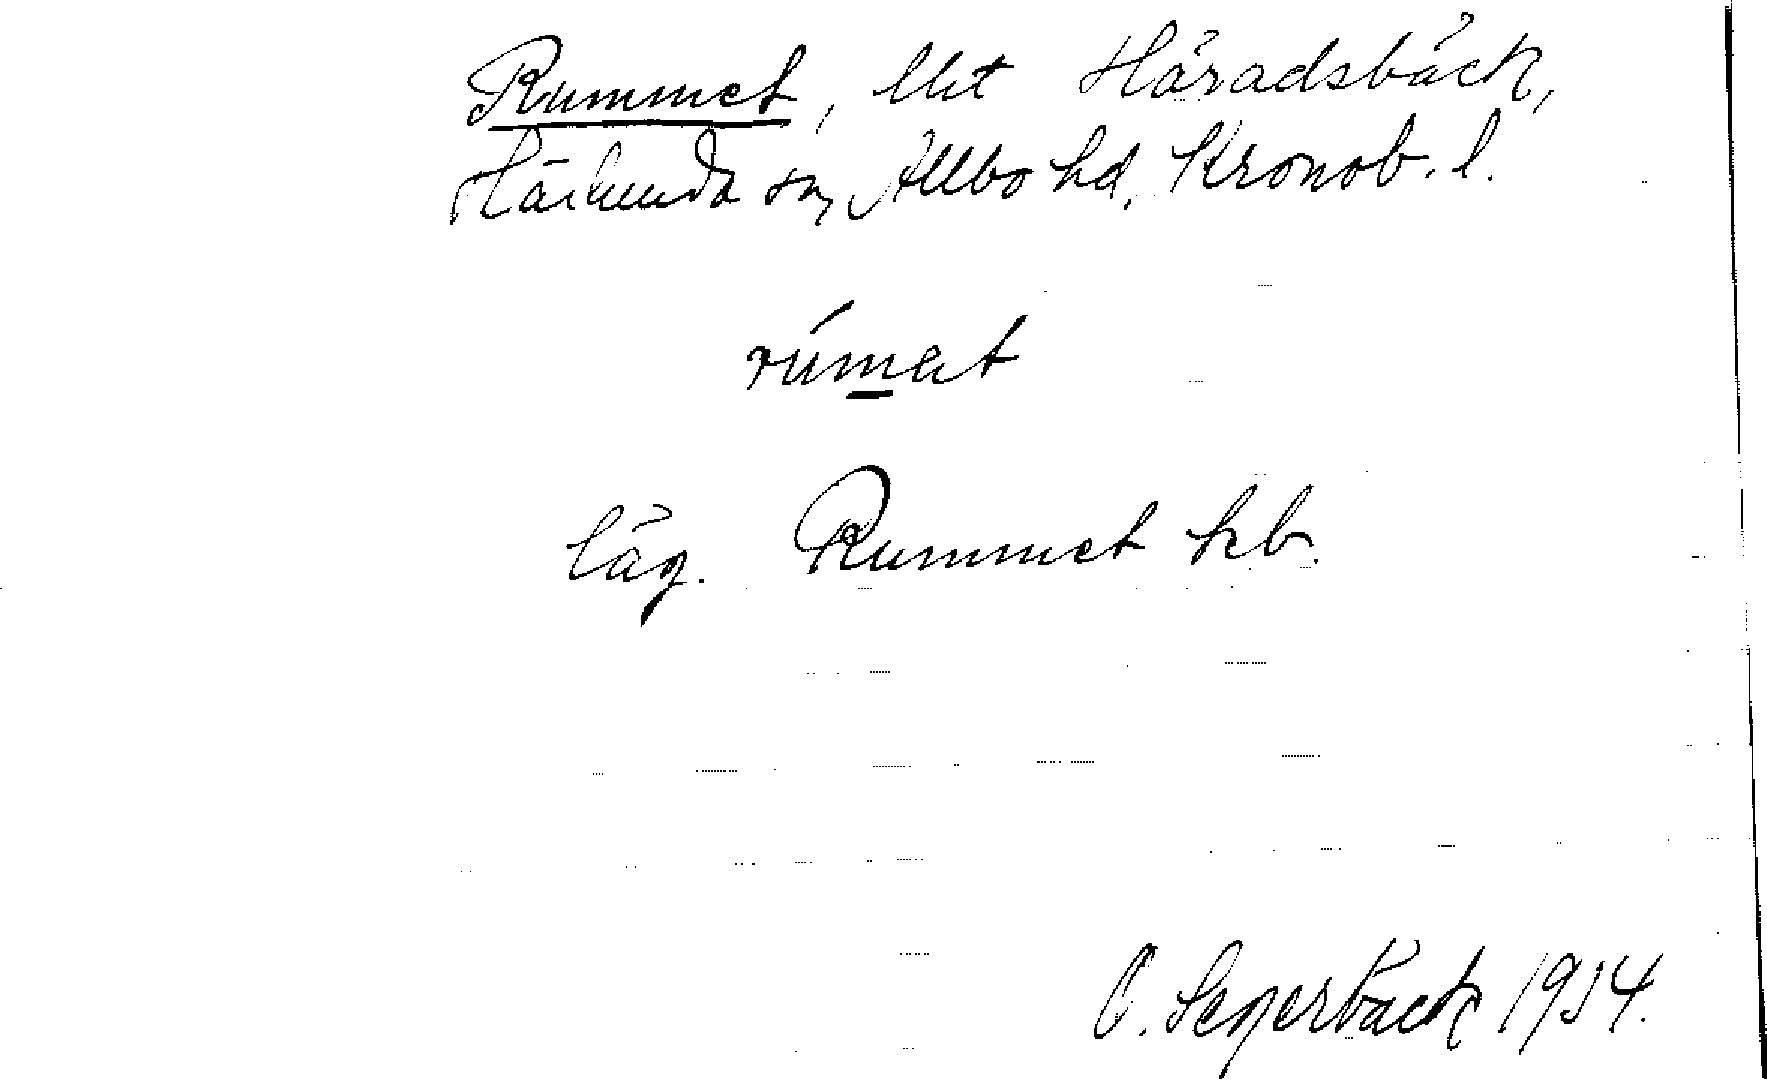 Rummet, Ut Häradsbäck,
Härlunda sn, Allbo hd, Kronob. l.
rúmat
läg. Rummet kb.
O. Segerbäck 1934.